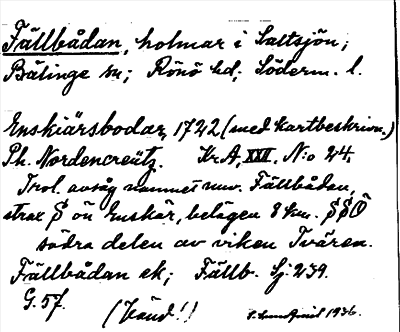 Fällbådan, holmar i Saltsjön;
Bälinge sn; Rönö hd; Söderm. l.
Enskiärsbodar, 1722 (med kartbeskrivn.)
Ph. Nordencreütz. Kr.A, XXI, N:o 24.
Trol. avsåg namnet nuv. Fällbådan,
strax S ön Enskär, belägen 8 km. SSO
södra delen av viken Tvären.
Fällbådan ek; Fällb. Sj. 239.
G. 57. (Vänd!) 1936.